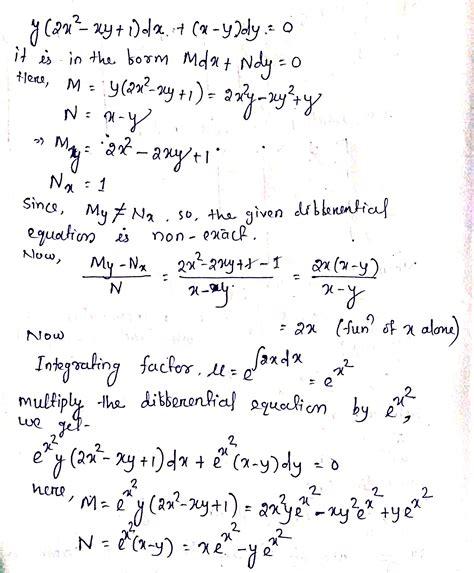 y(2x²-xy+1)dx + (x-y)dy = 0
it is in the borm Mdx + Ndy = 0
Here, M = y(2x²-xy+1) = 2x²y-xy²+y
N = x-y
⇒ My = 2x²-2xy+1
Nx = 1
Since, My ≠ Nx, so, the given dibberential
equation is non-exact.
Now, (My-Nx)/N = (2x²-2xy+1-1)/(x-y) = 2x(x-y)/(x-y)
= 2x (funⁿ of x alone)
Now
Integrating factor, μ = e^∫2xdx = e^x²
multiply the dibberential equation by e^x²,
we get-
e^x² y(2x²-xy+1)dx + e^x²(x-y)dy = 0
here, M = e^x² y(2x²-xy+1) = 2x²ye^x² - xy²e^x² + ye^x²
N = e^x²(x-y) = xe^x² - ye^x²